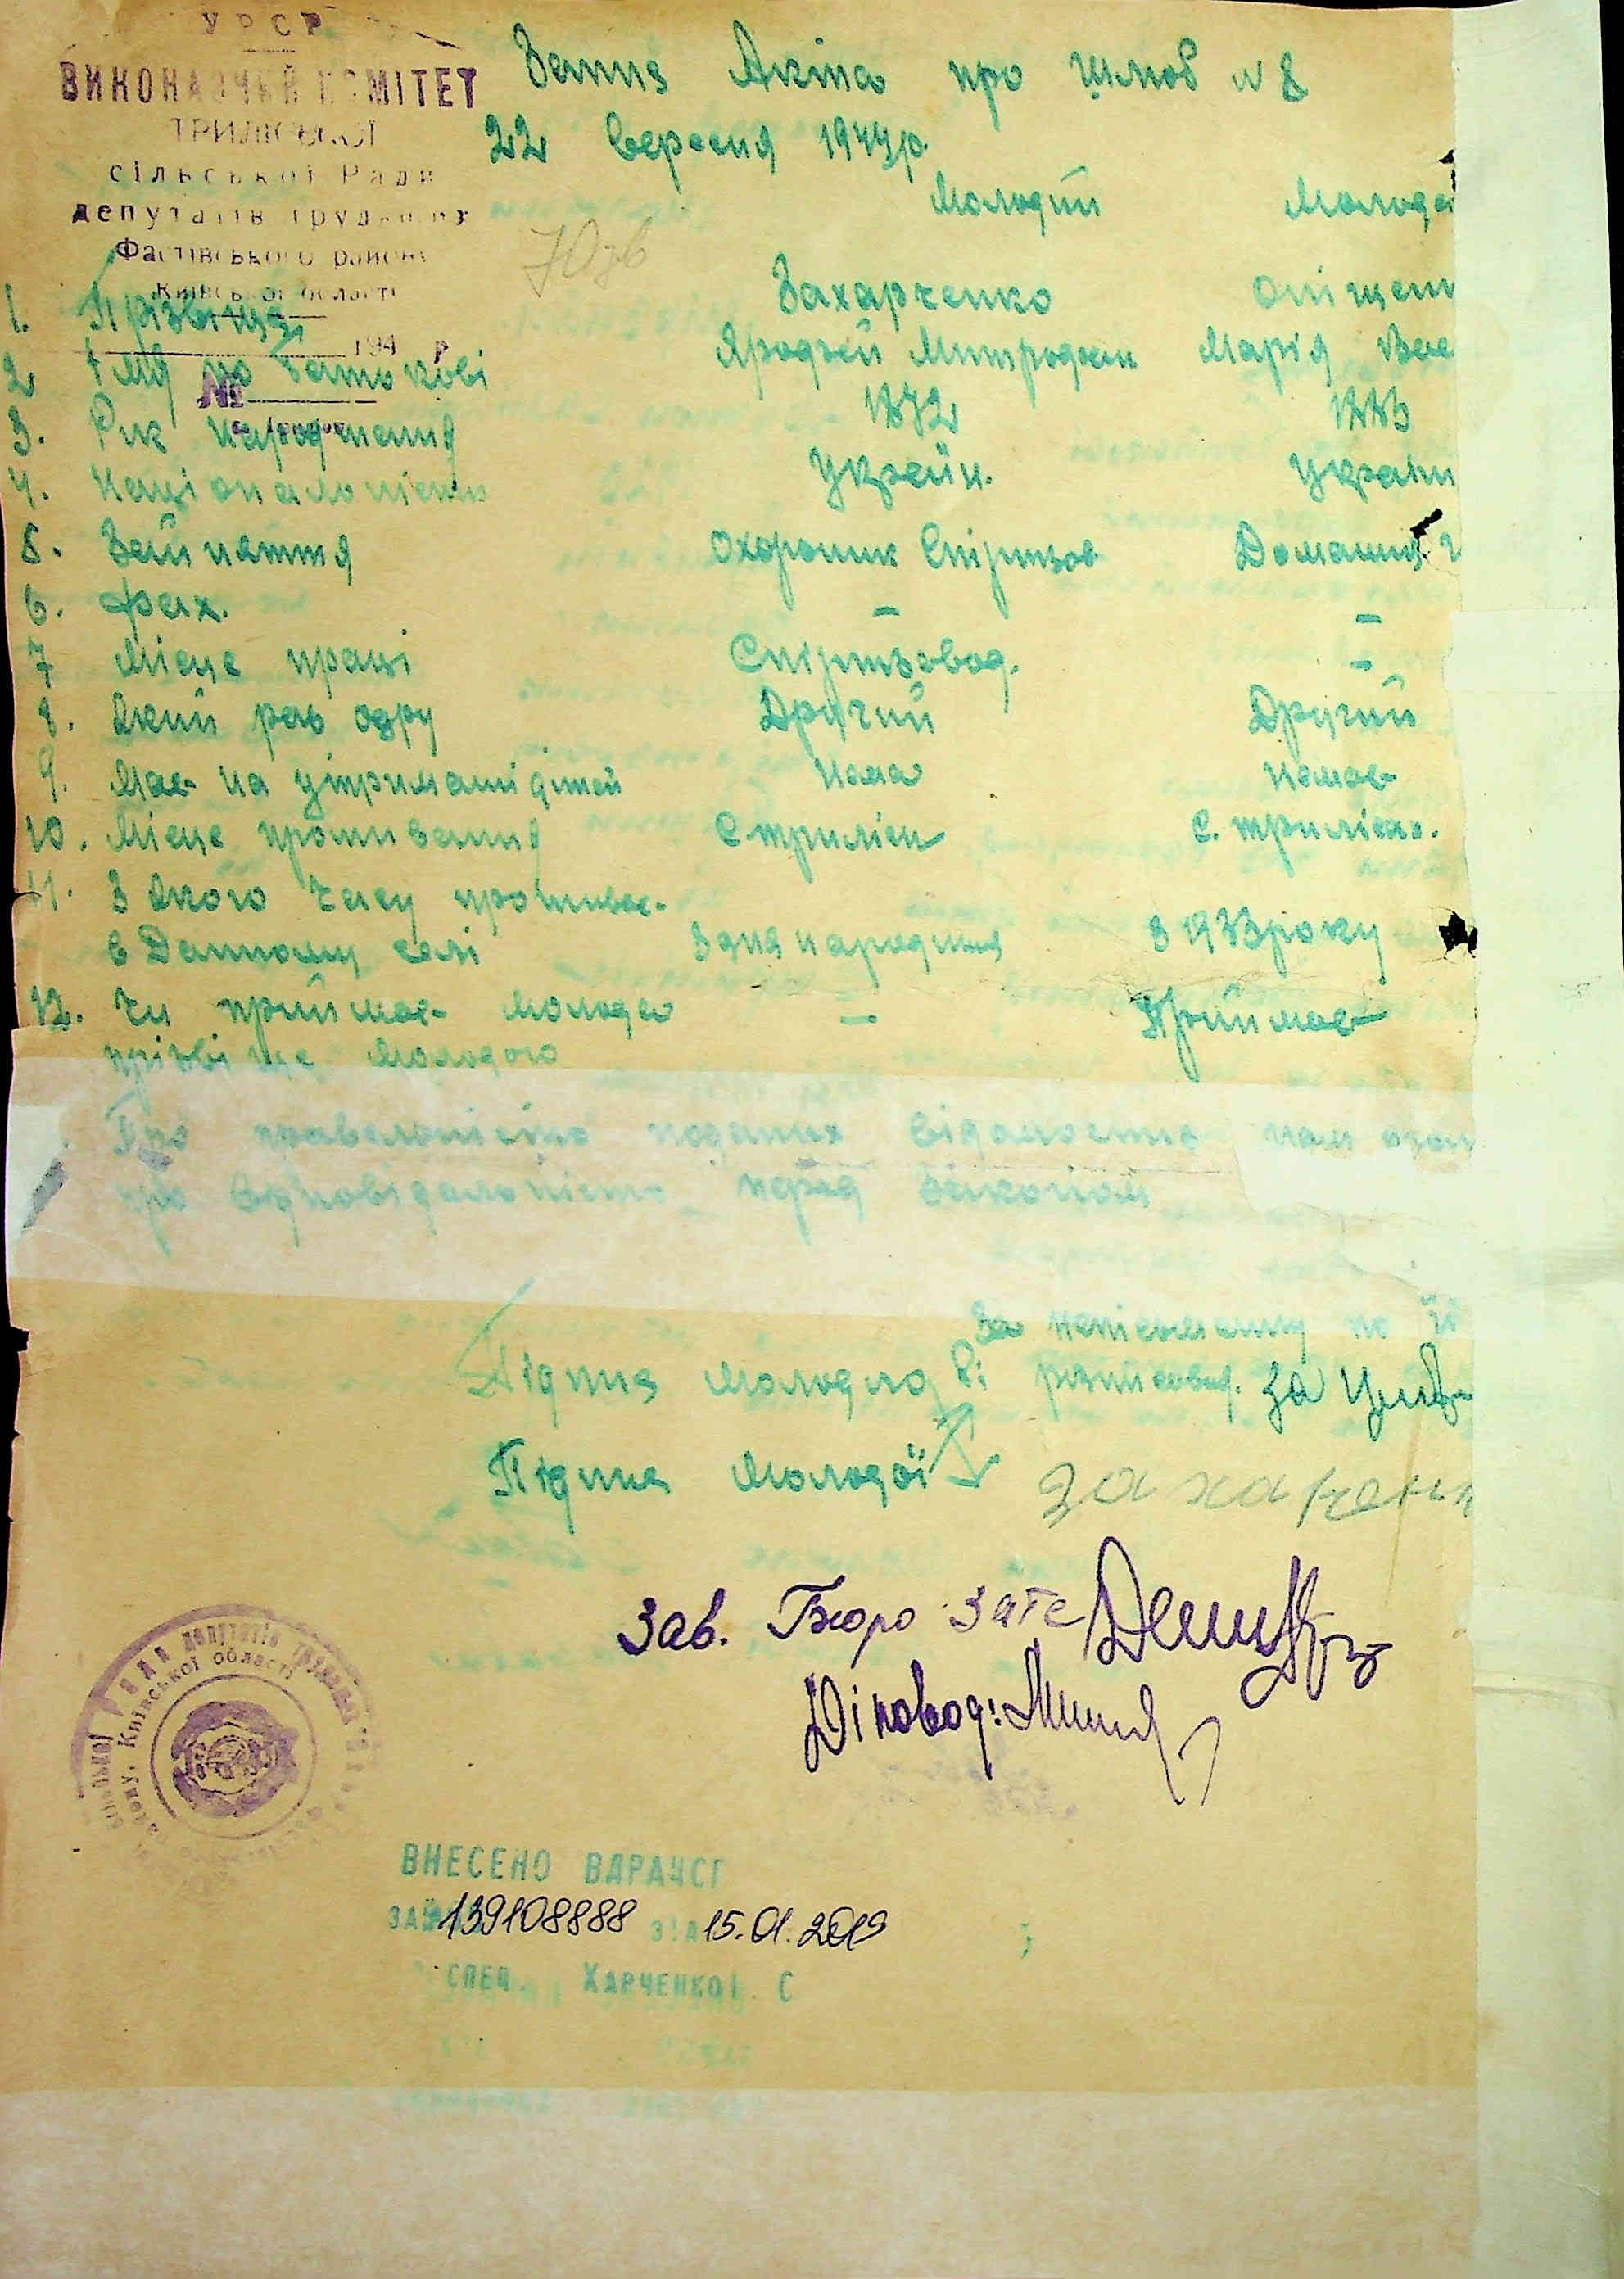 УРСР
ВИКОНАВЧИЙ КОМІТЕТ
ТРИЛІСЬКОЇ
сільської Ради
депутатів трудящих
Фастівського району
Київської області
194 р
№
Запис Акта про шлюб N 8
22 вересня 1944р.
Молодий Молода
1. Прізвище Захарченко Оніщен
2 Імя по батькові Митрофан Марія Вас
3. Рік народження 1872 1883
4. Національність Україн. Україн
5. Зайняття Охороник Спіртзов Домашня г
6. Фах. – –
7 Місце праці Спіртзовод. –
8. Який раз одру Другий Другий
9. Має на утримані дітей Нема Немає
10. Місце проживання С. триліси С. триліси.
11. З якого часу проживає
в Данному селі З дня народження З 1933 року
12. Чи приймає молода – Приймає
прізвіще молодого
Про правельність поданих відомостів нам
про відповідальність перед законом
За непісьменну по її
Підпис молодого розписавсь. За
Підпис молодої захарчен
Зав. Бюро Загс
Діловод:
Київської області
ВНЕСЕНО ВДРАЦСГ
ЗА № 139108888 ЗІА 15.01.2019
СПЕЦ. ХАРЧЕНКО І. С